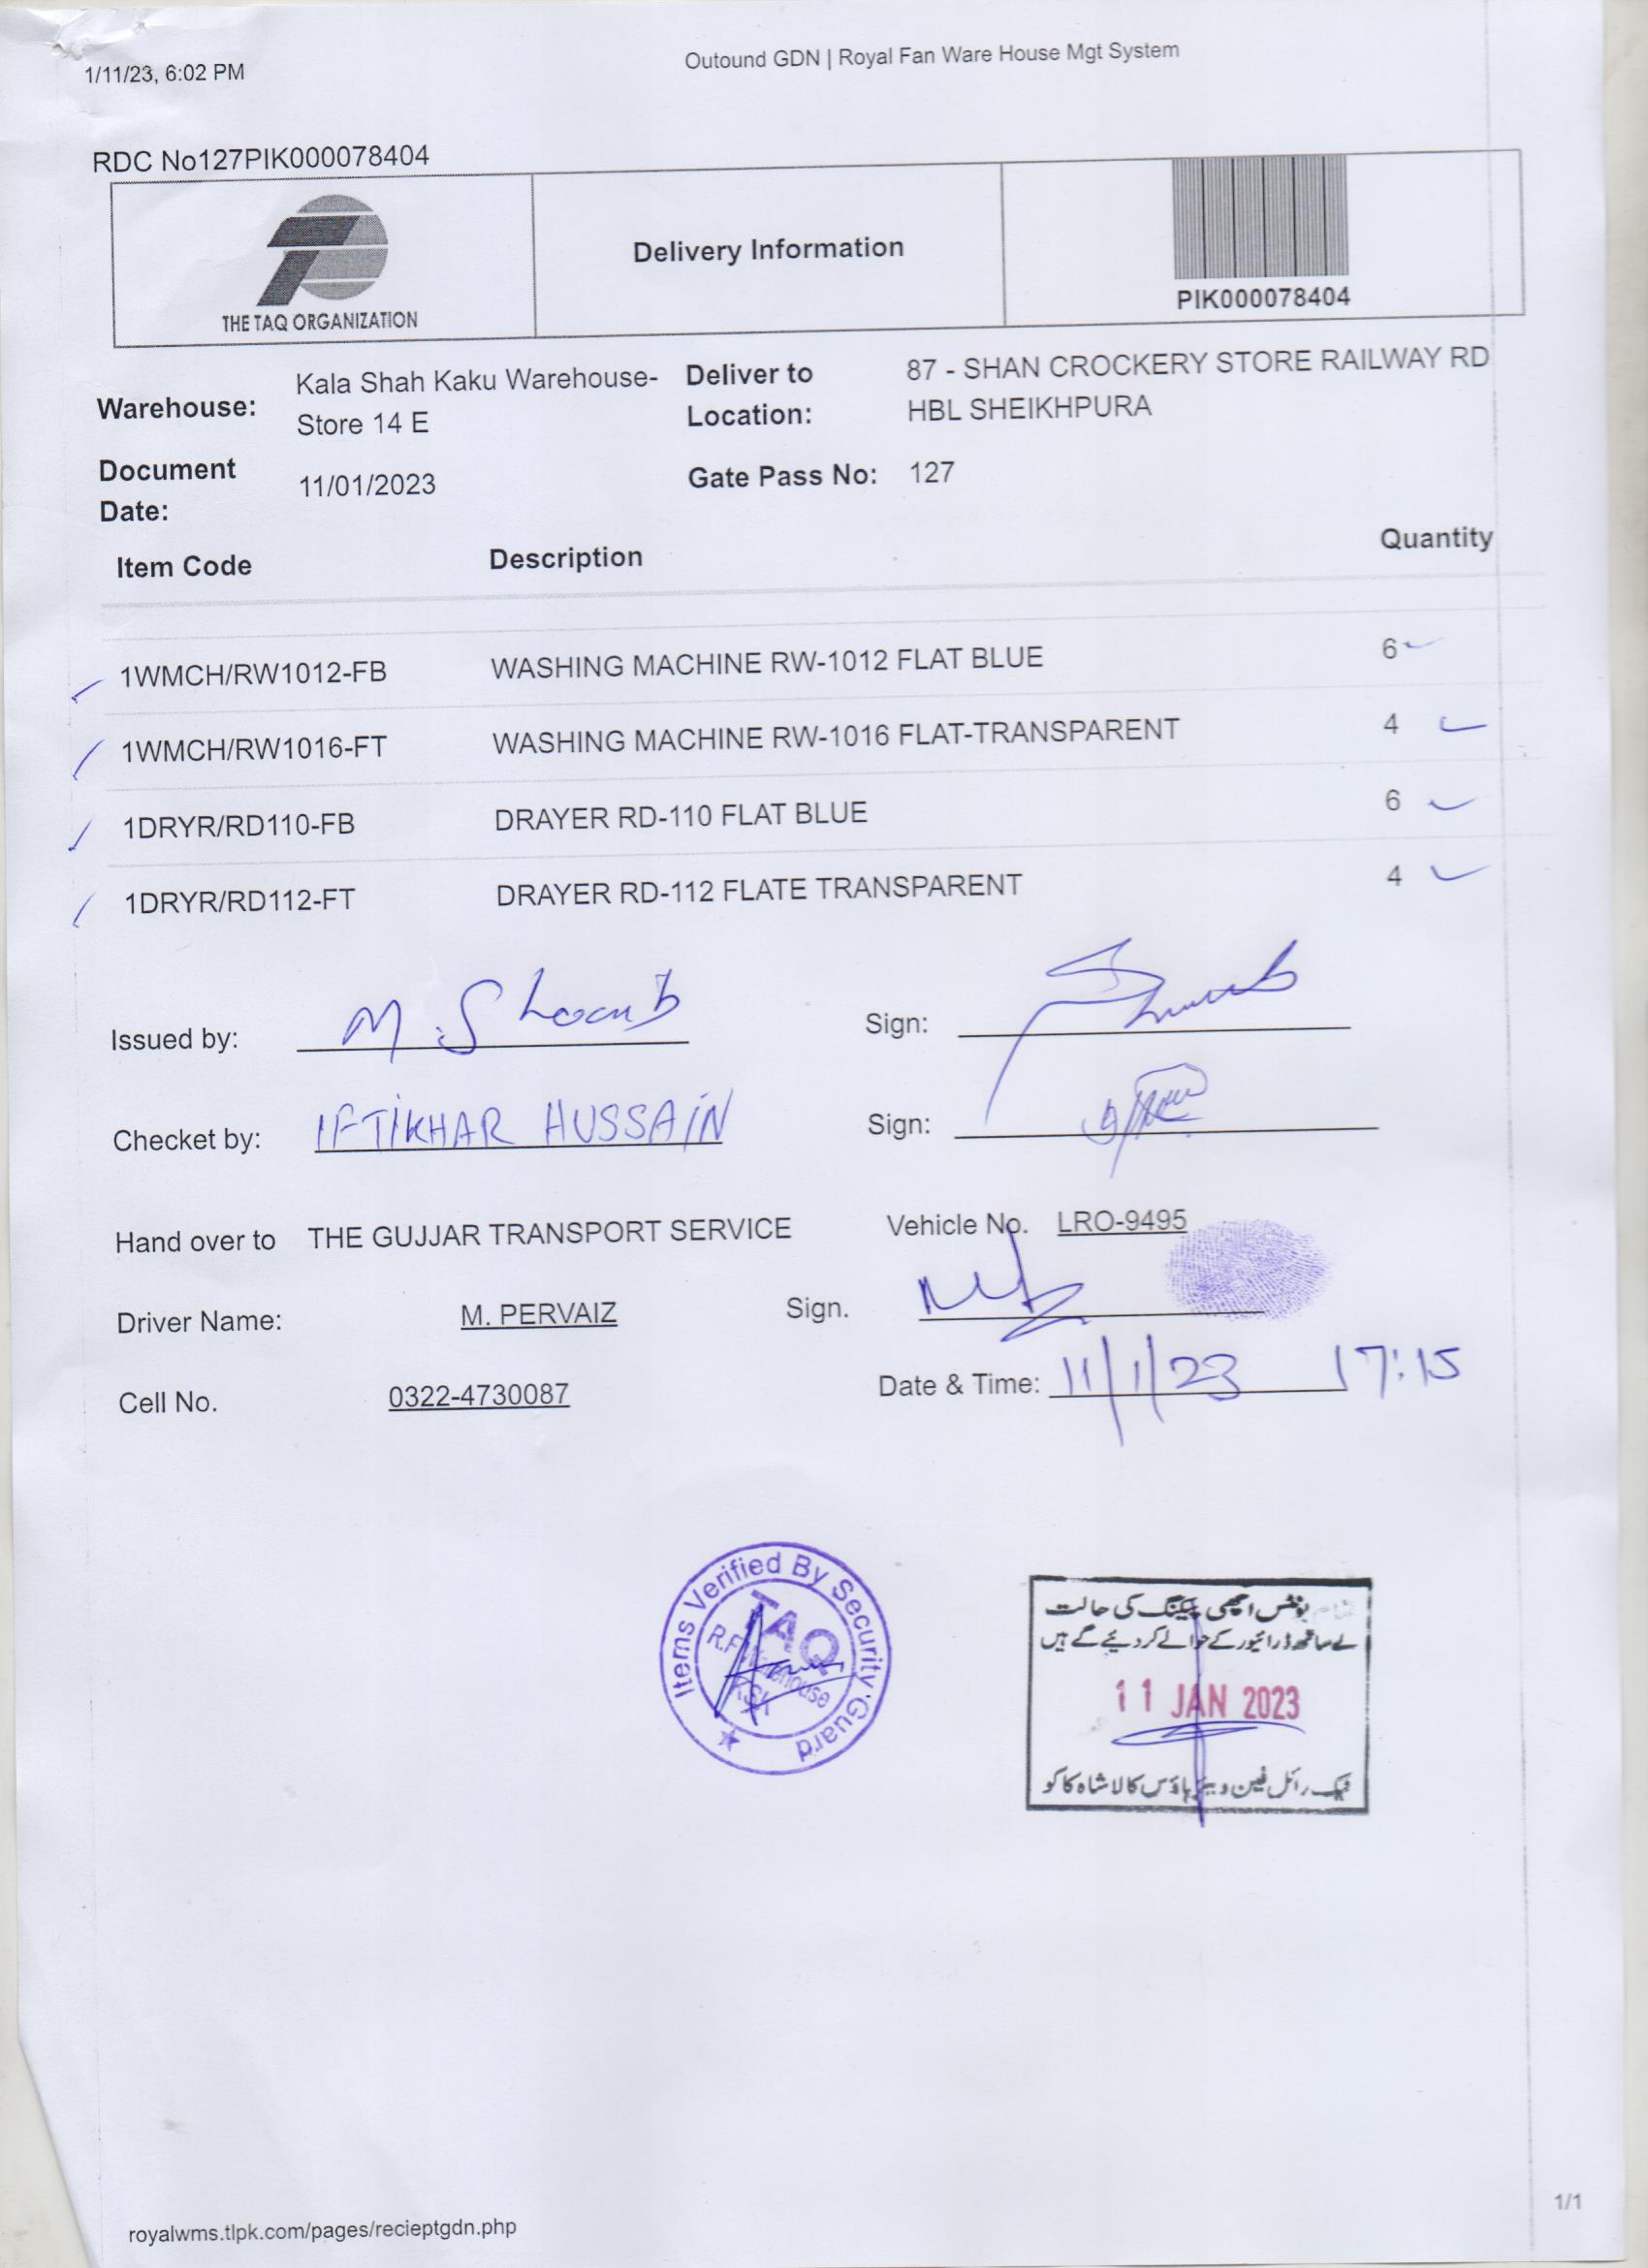 1/11/23, 6:02 PM
Outound GDN | Royal Fan Ware House Mgt System
RDC No127PIK000078404
THE TAQ ORGANIZATION
Delivery Information
PIK000078404
Warehouse: Kala Shah Kaku Warehouse-
Store 14 E
Deliver to
Location: 87 - SHAN CROCKERY STORE RAILWAY RD
HBL SHEIKHPURA
Document
Date: 11/01/2023
Gate Pass No: 127
Item Code Description Quantity
1WMCH/RW1012-FB WASHING MACHINE RW-1012 FLAT BLUE 6
1WMCH/RW1016-FT WASHING MACHINE RW-1016 FLAT-TRANSPARENT 4
1DRYR/RD110-FB DRAYER RD-110 FLAT BLUE 6
1DRYR/RD112-FT DRAYER RD-112 FLATE TRANSPARENT 4
Issued by: M. Sign:
Checket by: IFTIKHAR HUSSAIN Sign:
Hand over to THE GUJJAR TRANSPORT SERVICE Vehicle No. LRO-9495
Driver Name: M. PERVAIZ Sign.
Cell No. 0322-4730087 Date & Time: 11/1/23 17:15
Items Verified By Security Guard
TAQ
R.F Warehouse
KSK
یونٹس اچھی پیکنگ کی حالت
کے ساتھ ڈرائیور کے حوالے کر دئیے گے ہیں
11 JAN 2023
رائل فین ویئر ہاؤس کالا شاہ کاکو
royalwms.tlpk.com/pages/recieptgdn.php
1/1